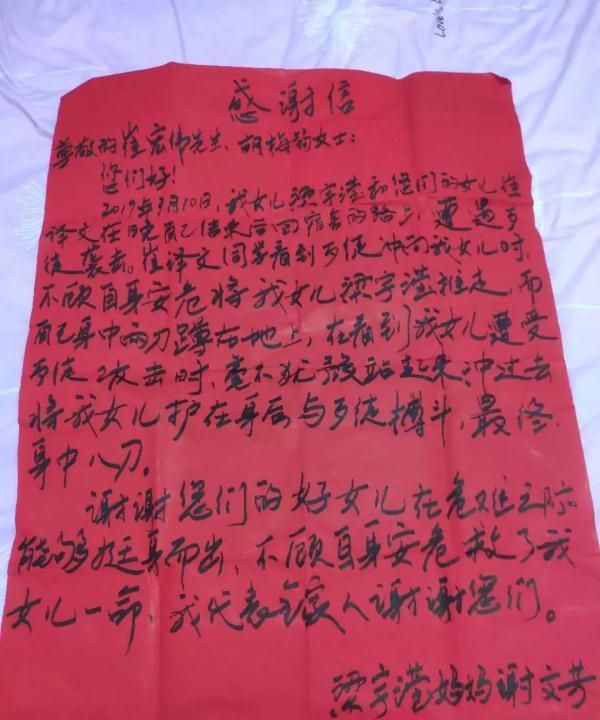 LOVE is L
感谢信
尊敬的崔宏伟先生、胡梅韵女士：
您们好！
2019年3月10日，我女儿梁宇滢和您们的女儿崔
译文在晚自己结束后回宿舍的路上，遭遇歹
徒袭击。崔译文同学看到歹徒冲向我女儿时，
不顾自身安危将我女儿梁宇滢推走，而
自己身中两刀蹲在地上，在看到我女儿遭受
歹徒攻击时，毫不犹豫站起来冲过去
将我女儿护在身后与歹徒搏斗，最终
身中八刀。
谢谢您们的好女儿在危难之际
能够挺身而出，不顾自身安危救了我
女儿一命，我代表全家人谢谢您们。
梁宇滢妈妈谢文芳